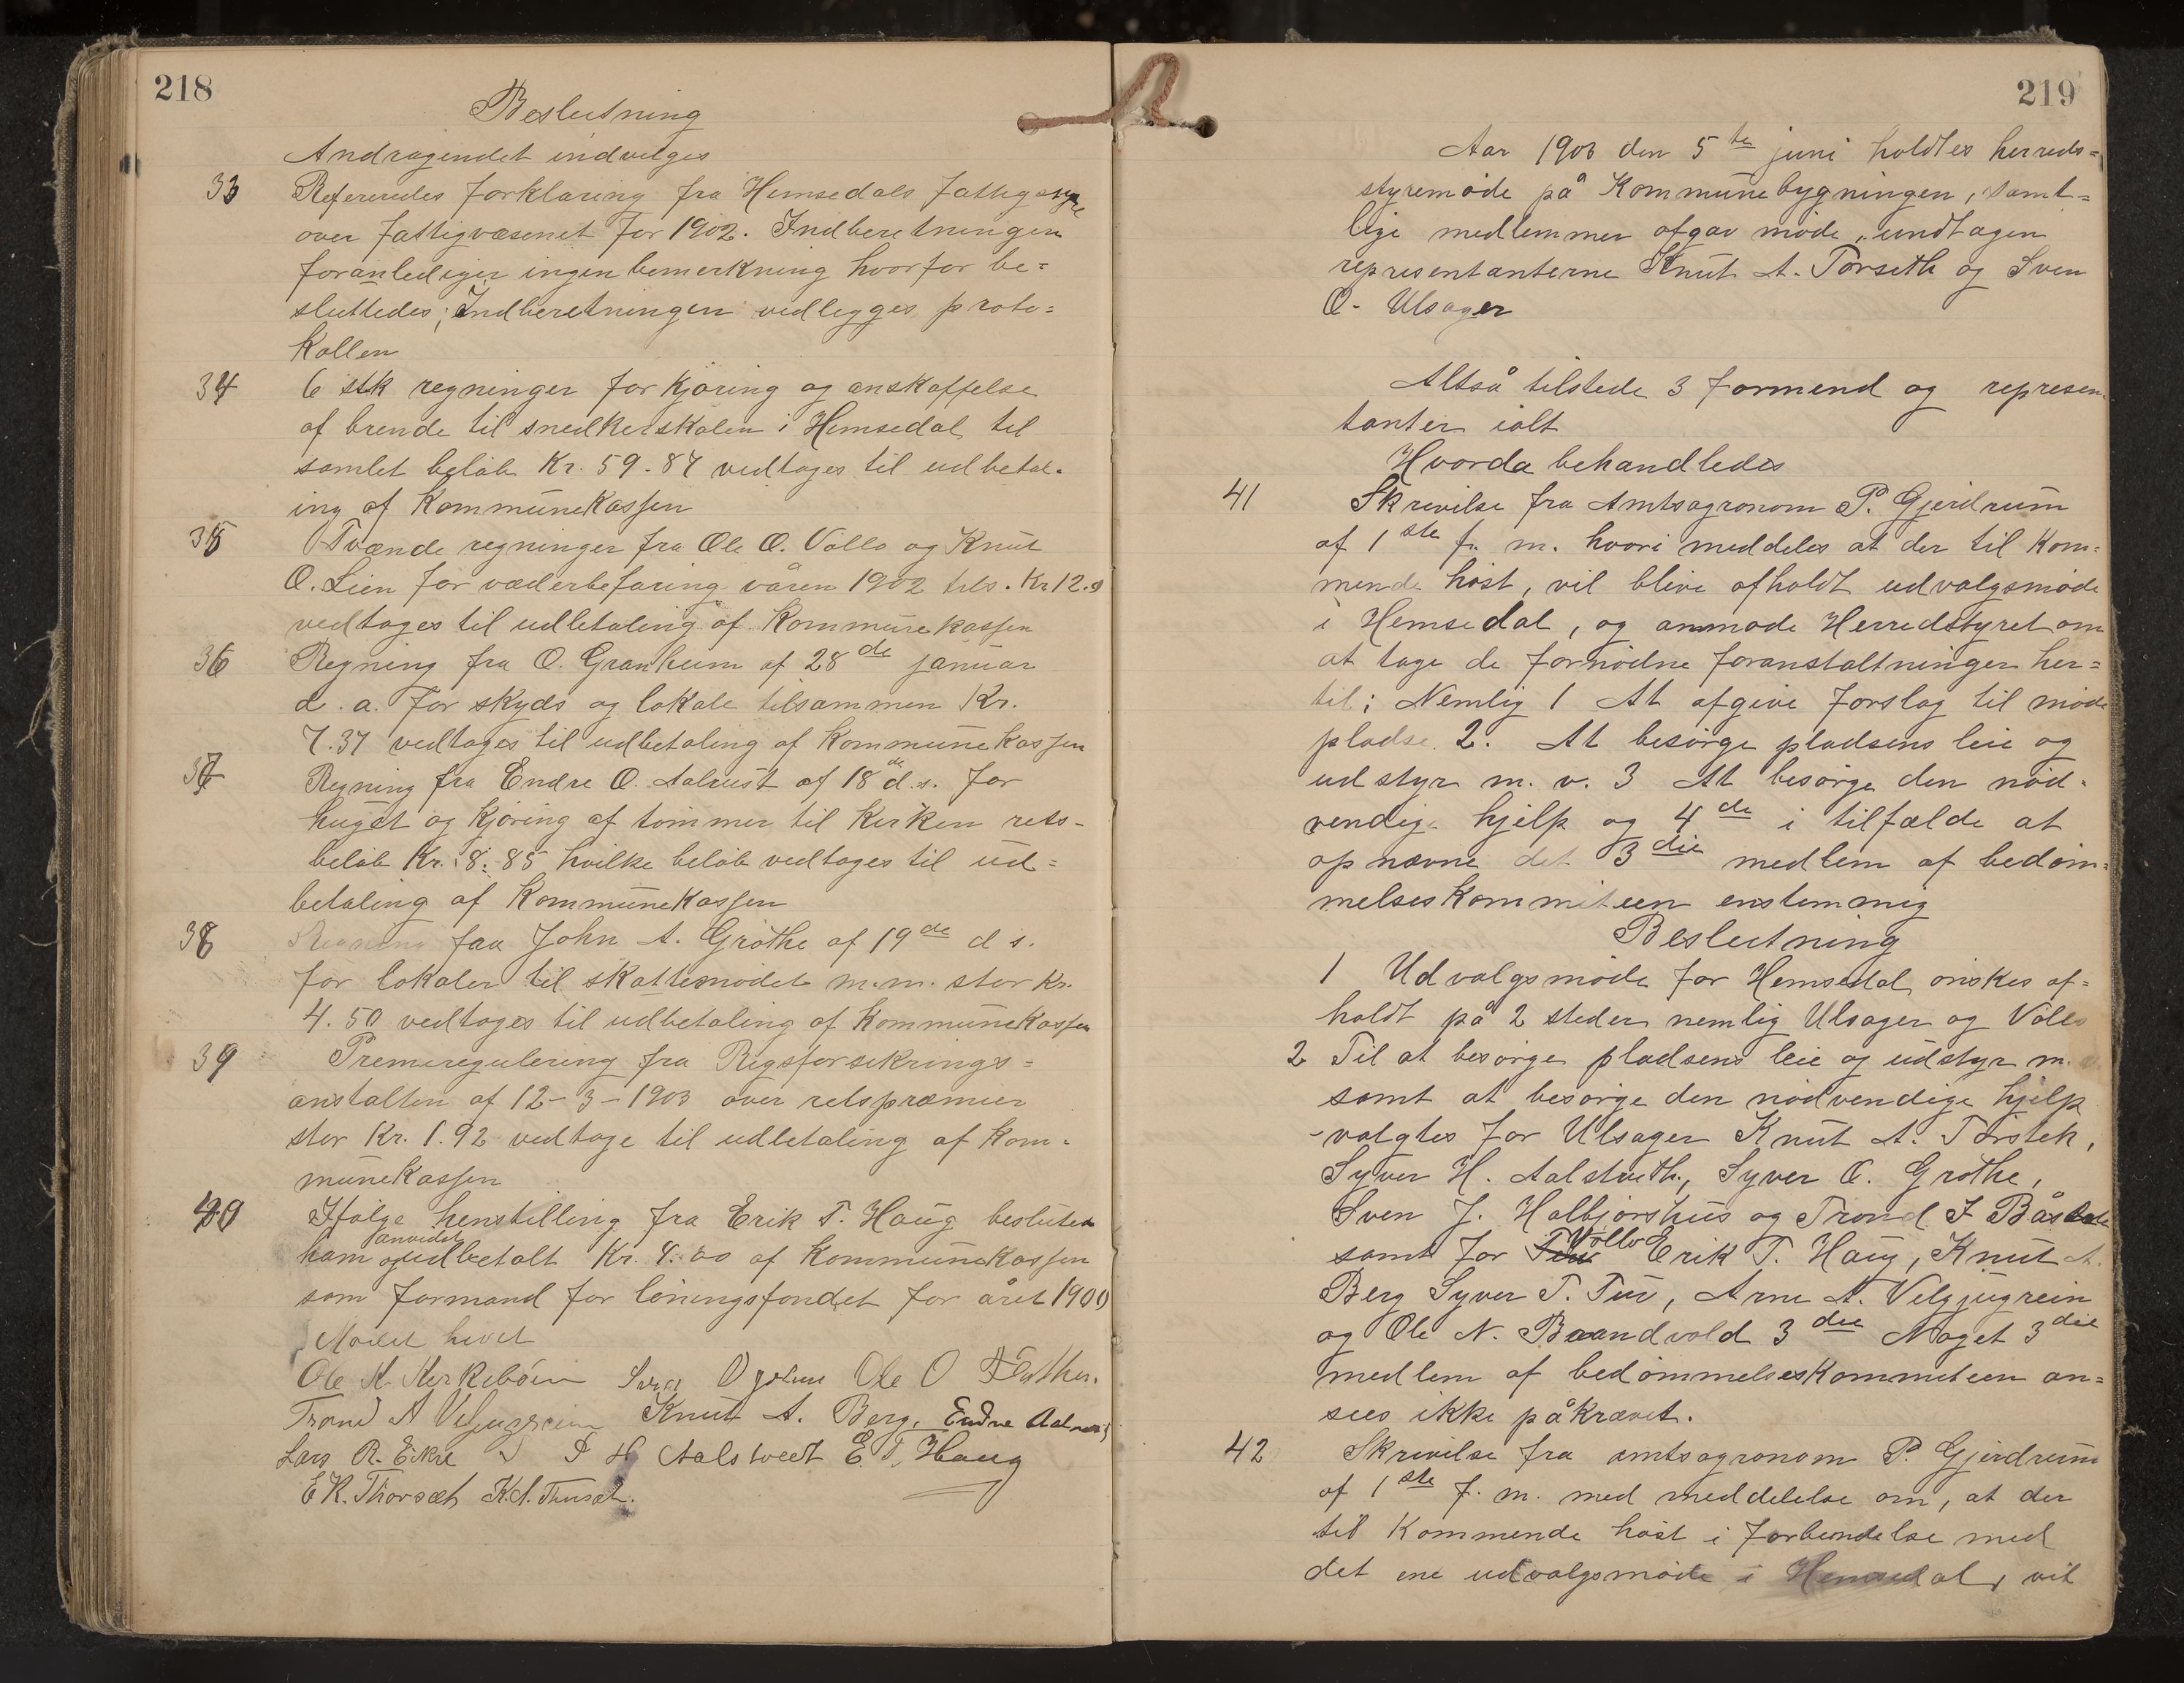 218
Beslutning
Andragendet indvilges
33 Refereredes forklaring fra Hemsedals fattigstyre
over fattigvæsenet for 1902. Indberetningen
foranlediger ingen bemerkning hvorfor be=
sluttedes; Indberetningen vedlegges proto=
kollen
34 6 stk regninger for kjøring og anskaffelse
af brende til snedkerskolen i Hemsedal til
samlet beløb Kr. 59.87 vedtages til udbetal-
ing af Kommunekassen
35 Tvænde regninger fra Ole O. Vøllo og Knut
O. Lien for væderbefaring våren 1902 tils. Kr 12.
vedtages til udbetaling af Kommunekassen
36 Regning fra O. Granheim af 28de januar
d. a. for skyds og lokale tilsammen Kr.
7.37 vedtages til udbetaling af Kommunekassen
37 Regning fra Endre O. Aalrust af 18de d.s. for
huget og kjøring af tømmer til Kirken rets-
beløb Kr. 8.85 hvilke beløb vedtages til ud=
betaling af Kommunekassen
38 Regning fra John A. Grøthe af 19de d s.
for lokaler til skattemødet m.m. stor Kr.
4.50 vedtages til udbetaling af Kommunekassen
39 Premieregulering fra Rigsforsikrings=
anstalten af 12-3-1903 over retspræmier
stor Kr. 1.92 vedtage til udbetaling af Kom-
munekassen
40 Ifølge henstilling fra Erik T. Haug beslutes
anvidst
ham og udbetalt Kr. 8.00 af Kommunekassen
som formand for løningsfondet for året 1900
Mødet hevet
Ole K. Kirkebøen Ole O
Trond A Veljugrein Knut A. Berg. Endre Aalrust
Lars R. Eikre S H Aalstveit E. T. Haug
E K. Thorset K.A. Thorset.
219
Aar 1903 den 5te juni holdtes herreds=
styremøde på Kommunebygningen, samt=
lige medlemmer afgav møde, undtagen
representanterne Knut A. Torseth og Sven
O. Ulsager
Altså tilstede 3 formend og represen
tanter ialt
Hvorda behandledes
41 Skrivelse fra Amtsagronom P. Gjerdrum
af 1ste f. m. hvori meddeles at der til Kom=
mende høst, vil blive afholdt udvalgsmøde
i Hemsedal, og anmode Herredstyret om
at tage de fornødne foranstaltninger her=
til; Nemlig 1 At afgive forslag til møde
pladse. 2. At besørge pladsens leie og
udstyr m. v. 3 At besørge den nød-
vendige hjelp og 4de i tilfælde at
opnævne det 3die medlem af bedøm=
melseskommiteen enstemmig
Beslutning
1 Udvalgsmøde for Hemsedal ønskes af=
holdt på 2 steder nemlig Ulsager og Vøllo
2 Til at besørge pladsens leie og udstyr m. v.
samt at besørge den nødvendige hjelp
-valgtes for Ulsager Knut A. Torsteh,
Syver H. Aalstveth, Syver O. Grøthe,
Sven J. Halbjørshus og Trond I
samt for Vøllo Erik T. Haug, Knut A.
Berg Syver T. Tuv, Arne A. Veljugrein
og Ole N. Braandvold 3die Noget 3die
medlem af bedømmelseskommiteen an=
sees ikke påkrævet.
42 Skrivelse fra amtsagronom P. Gjerdrum
af 1ste f. m. med meddelelse om, at der
til Kommende høst i forbindelse med
det ene udvalgsmøde i Hemsedal, vil